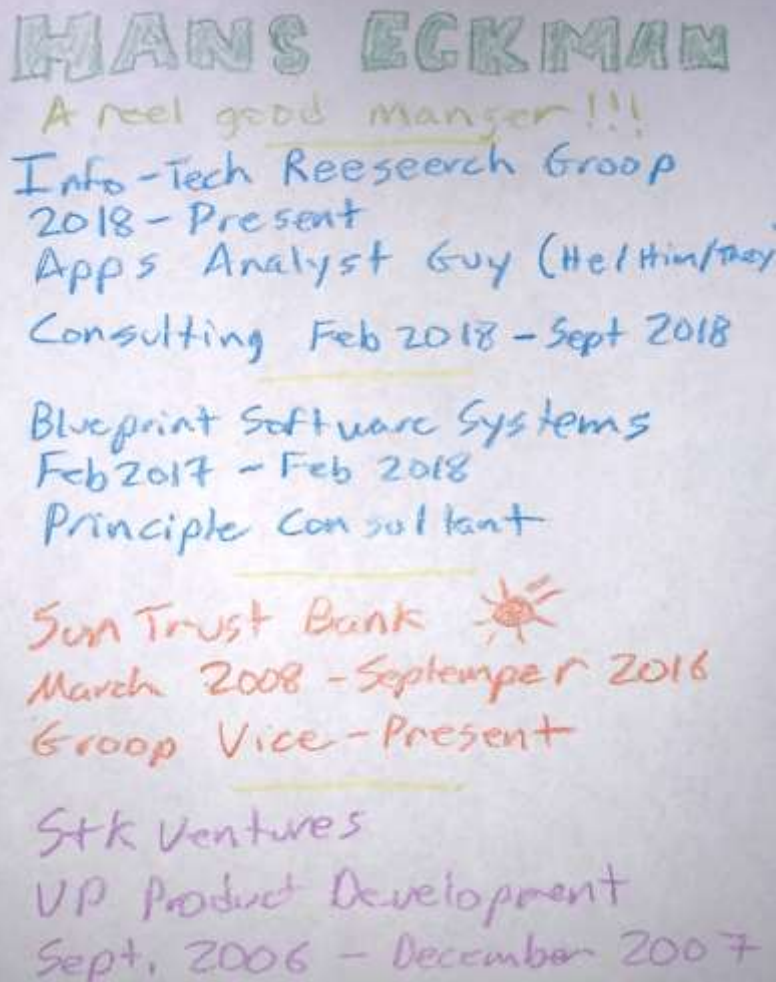 HANS ECKMAN
A reel good manger!!!
Info-Tech Reeseerch Groop
2018-Present
Apps Analyst Guy (He/Him/They
Consulting Feb 2018 - Sept 2018
Blueprint Software Systems
Feb 2017 - Feb 2018
Principle Consultant
Sun Trust Bank
March 2008 - Septemper 2016
Groop Vice-Present
Stk Ventures
VP Product Development
Sept. 2006 - December 2007